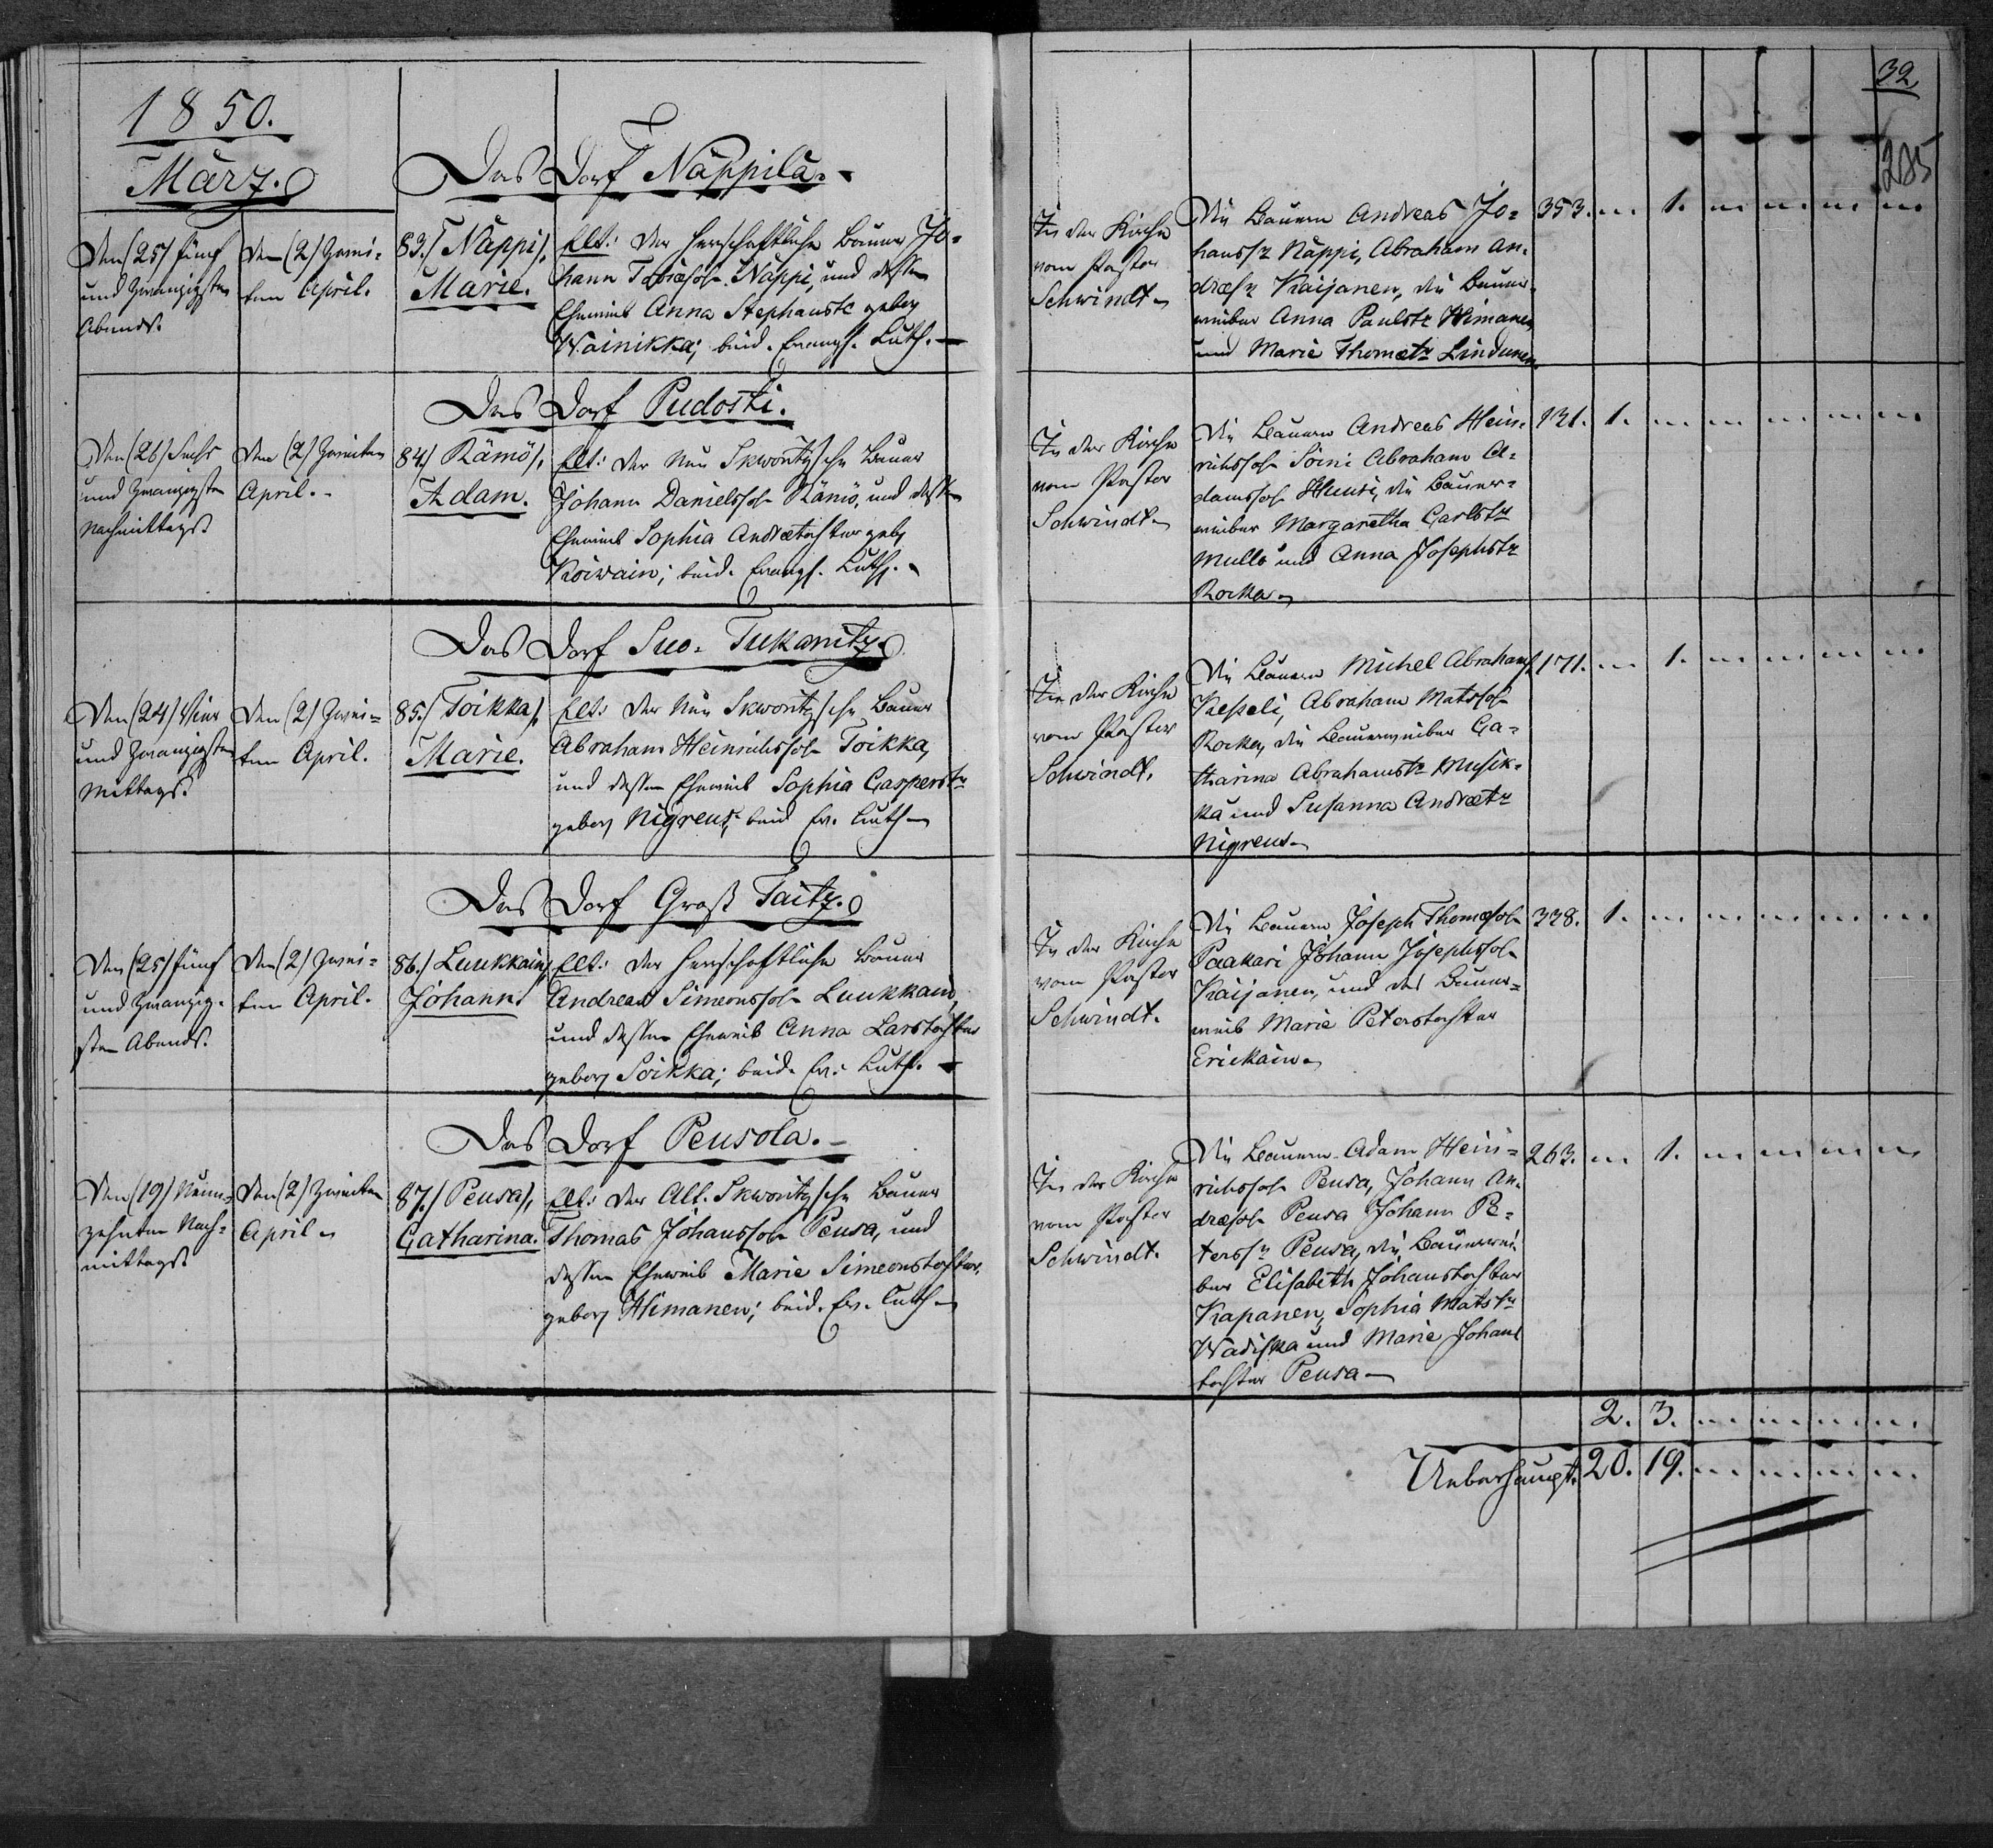 1850.
März.
Das Dorf Näppilä.
Den (25) fünf
und zwanzigsten
Abends.
Den (2) zwei-
ten April.
83.) Näppi,
Marie.
Elt: der herrschaftliche Bauer Jo-
hann Tobiæsoh. Näppi, und dessen
Eheweib Anna Stephanstr geborn
Wainikka; beid. Evangl. Luth.
In der Kirche
vom Pastor
Schwindt.
Die Bauern Andreas Jo-
hanssn Näppi, Abraham An-
dræsn Kaijanen, die Bauer-
weiber Anna Paulstr Himanen
und Marie Thomætr Lindunen
353. 1.
Das Dorf Pudosti.
Den (26) sechs
und zwanzigsten
Nachmittags.
Den (2) zweiten
April.
84.) Rämö,
Adam.
Elt: der Neu Skworitzsche Bauer
Johann Danielssoh Rämö, und dessen
Eheweib Sophia Andrætochter geb.
Koiwain; beid. Evangl. Luth.
In der Kirche
vom Pastor
Schwindt.
Die Bauern Andreas Hein-
richssoh Soini Abraham A-
damssoh Heusi, die Bauer-
weiber Margaretha Carlstr
Mullo und Anna Josephstr
Rocka.
131. 1.
Das Dorf Suo-Tukanitz.
Den (24) vier
und zwanzigsten
Mittags.
Den (2) zwei-
ten April.
85.) Toikka,
Marie.
Elt: der Neu Skworitzsche Bauer
Abraham Heinrichssoh Toikka,
und dessen Eheweib Sophia Casperstr
geborn Nigreus; beid Ev. Luth
In der Kirche
vom Pastor
Schwindt.
Die Bauern Michel Abrahams.
Kesseli, Abraham Matssoh
Rocka, die Bauerweiber Ca-
tharina Abrahamstr Musik-
ka und Susanna Andrætr
Nigreus
171. 1.
Das Dorf Groß Taitz.
Den (25) fünf
und zwanzig-
sten Abends.
Den (2) zwei-
ten April.
86.) Luukkain,
Johann.
Elt: der herrschaftliche Bauer
Andreas Simeonssoh Luukkain,
und dessen Eheweib Anna Larstochter
geborn Soikka; beid. Ev. Luth.
In der Kirche
vom Pastor
Schwindt.
Die Bauern Joseph Thomæsoh
Paakari Johann Josephssoh
Kaijanen, und das Bauer-
weib Marie Peterstochter
Erickain
338. 1.
Das Dorf Peusola.
Den (19) neun-
zehnten Nach-
mittags.
Den (2) zweiten
April
87.) Peusa,
Catharina.
Elt: der Alt. Skworitzsche Bauer
Thomas Johanssoh Peusa, und
dessen Eheweib Marie Simeonstochter,
geborn Himanen; beid. Ev. Luth
In der Kirche
vom Pastor
Schwindt.
Die Bauern Adam Hein-
richssoh Peusa, Johann An-
dræsoh Peusa Johann Pe-
terssn Peusa, die Bauerwei-
ber Elisabeth Johanstochter
Kapanen, Sophia Matstr
Wadiska und Marie Johans
tochter Peusa
263. 1.
2. 3.
Ueberhaupt. 20. 19.
32
285